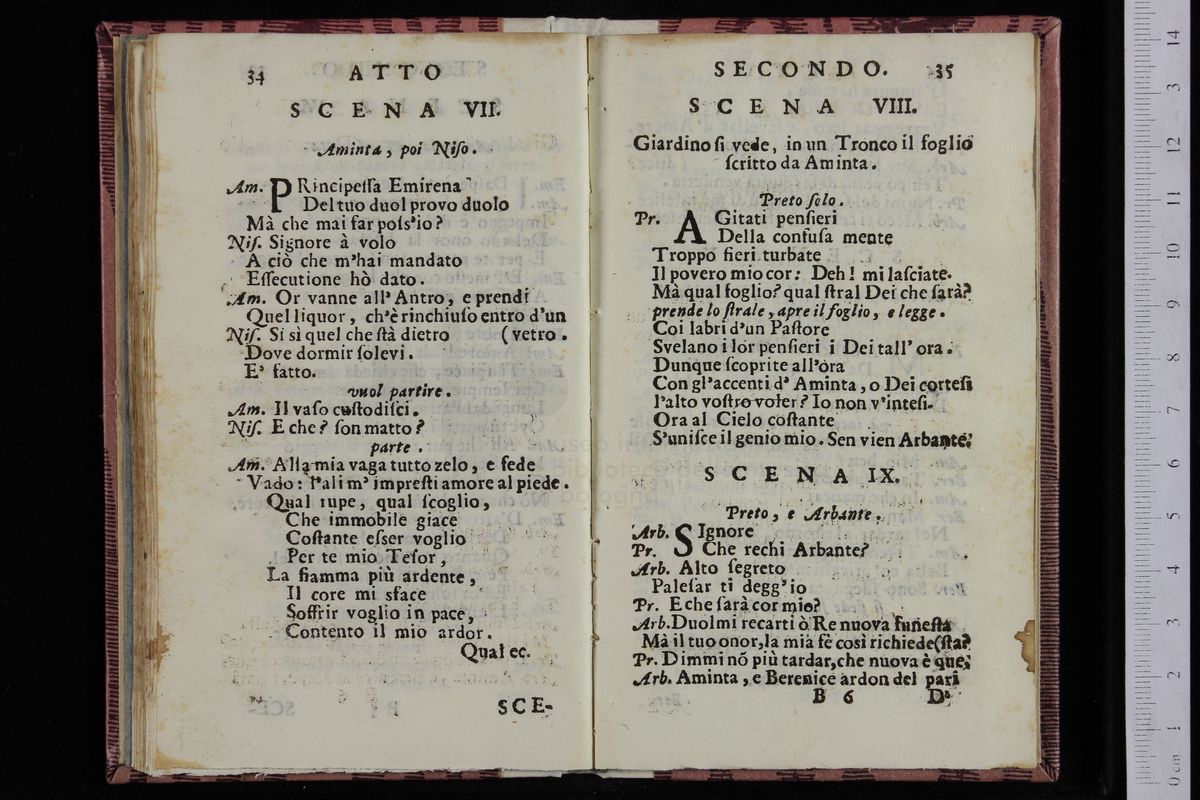 34 ATTO
SCENA VII.
Aminta, poi Niſo.
Am. PRincipeſſa Emirena
Del tuo duol provo duolo
Mà che mai far poſs'io?
Niſ. Signore à volo
A ciò che m'hai mandato
Eſſecutione hò dato.
Am. Or vanne all' Antro, e prendi
Quel liquor, ch'è rinchiuſo entro d'un
Niſ. Si sì quel che ſtà dietro (vetro.
Dove dormir ſolevi.
E' fatto.
vuol partire.
Am. Il vaſo cuſtodiſci.
Niſ. E che? ſon matto?
parte.
Am. Alla mia vaga tutto zelo, e fede
Vado: l'ali m' impreſti amore al piede.
Qual rupe, qual ſcoglio,
Che immobile giace
Coſtante eſser voglio
Per te mio Teſor,
La fiamma più ardente,
Il core mi sface
Soffrir voglio in pace,
Contento il mio ardor.
Qual ec.
SCE-
SECONDO. 35
SCENA VIII.
Giardino ſi vede, in un Tronco il foglio
ſcritto da Aminta.
Preto ſolo.
Pr. AGitati penſieri
Della confuſa mente
Troppo fieri turbate
Il povero mio cor: Deh! mi laſciate.
Mà qual foglio? qual ſtral Dei che ſarà?
prende lo ſtrale, apre il foglio, e legge.
Coi labri d'un Paſtore
Svelano i lor penſieri i Dei tall' ora.
Dunque ſcoprite all'ora
Con gl'accenti d' Aminta, o Dei corteſi
l'alto voſtro voler? Io non v'inteſi.
Ora al Cielo coſtante
S'uniſce il genio mio. Sen vien Arbante;
SCENA IX.
Preto, e Arbante.
Arb. SIgnore
Pr. Che rechi Arbante?
Arb. Alto ſegreto
Paleſar ti degg'io
Pr. E che ſarà cor mio?
Arb. Duolmi recarti ò Re nuova funeſta
Mà il tuo onor, la mia fè così richiede (ſta?
Pr. Dimmi nõ più tardar, che nuova è que;
Arb. Aminta, e Berenice ardon del pari
B 6 D'